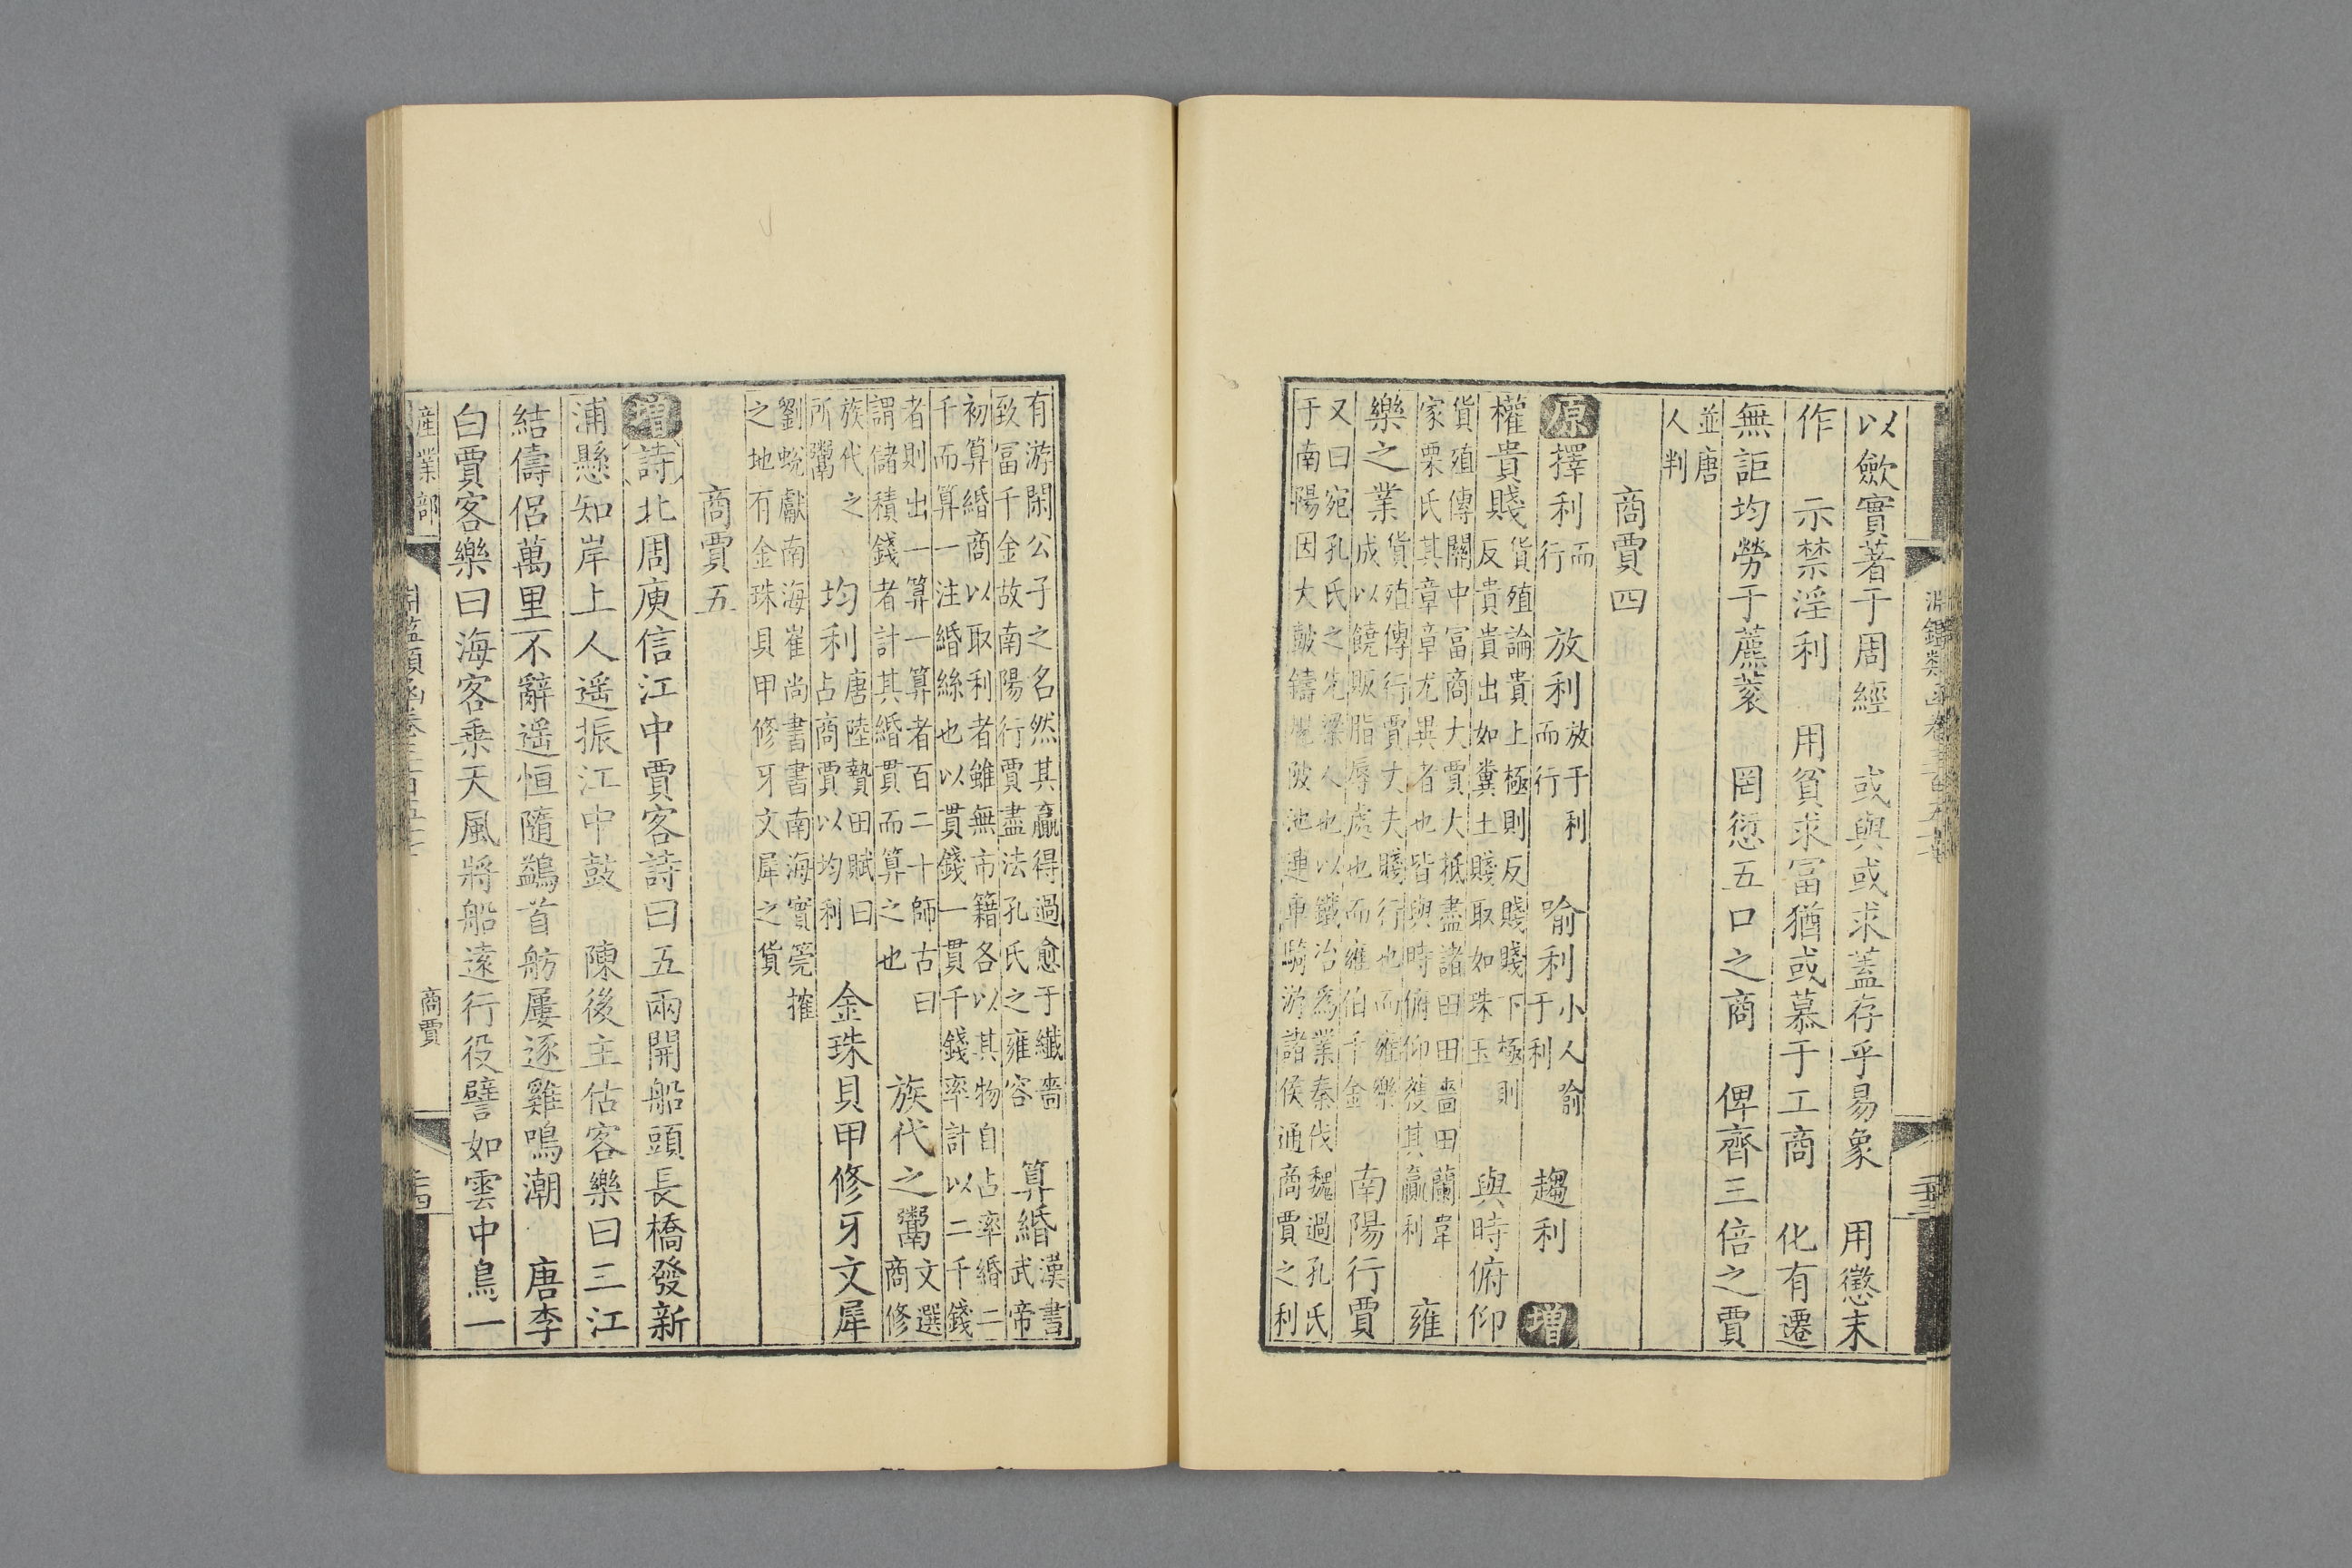 以歛實著于周經　或與或求蓋存乎易象　用懲末
作　示禁淫利　用貧求冨猶或慕于工商　化有遷
無詎均勞于藨蓘　罔愆五口之商　俾齊三倍之賈
並唐
人判
商賈四
原擇利而行　放利放于利而行　喻利小人喻于利　趨利　增
權貴賤貨殖論貴上極則反賤賤下極則反貴貴出如糞土賤取如珠玉　與時俯仰
貨殖傳關中冨商大賈大抵盡諸田田嗇田蘭韋
家栗氏其章章尤異者也皆與時俯仰獲其贏利　雍
樂之業貨殖傳行賈丈夫賤行也而雍樂成以饒販脂辱處也而雍伯千金　南陽行賈
又曰宛孔氏之先梁人也以鐵冶爲業秦伐魏過孔氏
于南陽因大鼓鑄規陂池連車騎游諸侯通商賈之利
有游閑公子之名然其贏得過愈于纎嗇
致冨千金故南陽行賈盡法孔氏之雍容　算緡漢書武帝
初算緡商以取利者雖無市籍各以其物自占率緡二
千而算一注緡絲也以貫錢一貫千錢率計以二千錢
者則出一算一算者百二十師古曰
謂儲積錢者計其緡貫而算之也　族代之鬻文選商修
族代之
所鬻　均利唐陸贄以田賦曰占商賈以均利　金珠貝甲修牙文犀
劉蛻獻南海崔尚書書南海實筦搉
之地有金珠貝甲修牙文犀之貨
商賈五
增詩北周庾信江中賈客詩曰五兩開船頭長橋發新
浦懸知岸上人遥振江中鼓　陳後主估客樂曰三江
結儔侶萬里不辭遥恒隨鷁首舫屢逐雞鳴潮　唐李
白賈客樂曰海客乗天風將船逺行役譬如雲中鳥一
產業部
商賈